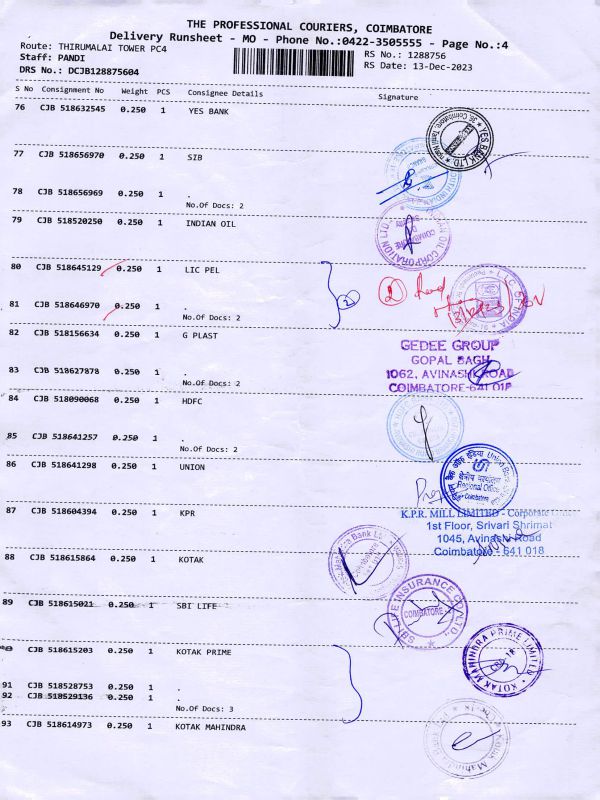 THE PROFESSIONAL COURIERS, COIMBATORE
Delivery Runsheet - MO - Phone No.:0422-3505555 - Page No.:4
Route: THIRUMALAI TOWER PC4 RS No.: 1288756
Staff: PANDI RS Date: 13-Dec-2023
DRS No.: DCJB128875604
S No Consignment No Weight PCS Consignee Details Signature
76 CJB 518632545 0.250 1 YES BANK
YES BANK LTD
77 CJB 518656970 0.250 1 SIB
78 CJB 518656969 0.250 1 .
No.Of Docs: 2
79 CJB 518520250 0.250 1 INDIAN OIL
INDIAN OIL CORPORATION LTD
COIMBATORE
80 CJB 518645129 0.250 1 LIC PEL
2
81 CJB 518646970 0.250 1 .
No.Of Docs: 2
82 CJB 518156634 0.250 1 G PLAST
GEDEE GROUP
GOPAL BAGH
1062, AVINASHI ROAD
COIMBATORE-641 018
83 CJB 518627878 0.250 1 .
No.Of Docs: 2
84 CJB 518090068 0.250 1 HDFC
85 CJB 518641257 0.250 1 .
No.Of Docs: 2
86 CJB 518641298 0.250 1 UNION
Union Bank
Regional Office
Coimbatore
87 CJB 518604394 0.250 1 KPR
K.P.R. MILL LIMITED - Corporate
1st Floor, Srivari Shrimat
1045, Avinashi Road
Coimbatore - 641 018
88 CJB 518615864 0.250 1 KOTAK
89 CJB 518615021 0.250 1 SBI LIFE
SBI LIFE INSURANCE CO. LTD.
COIMBATORE
90 CJB 518615203 0.250 1 KOTAK PRIME
KOTAK MAHINDRA PRIME LIMITED
91 CJB 518528753 0.250 1 .
92 CJB 518529136 0.250 1 .
No.Of Docs: 3
93 CJB 518614973 0.250 1 KOTAK MAHINDRA